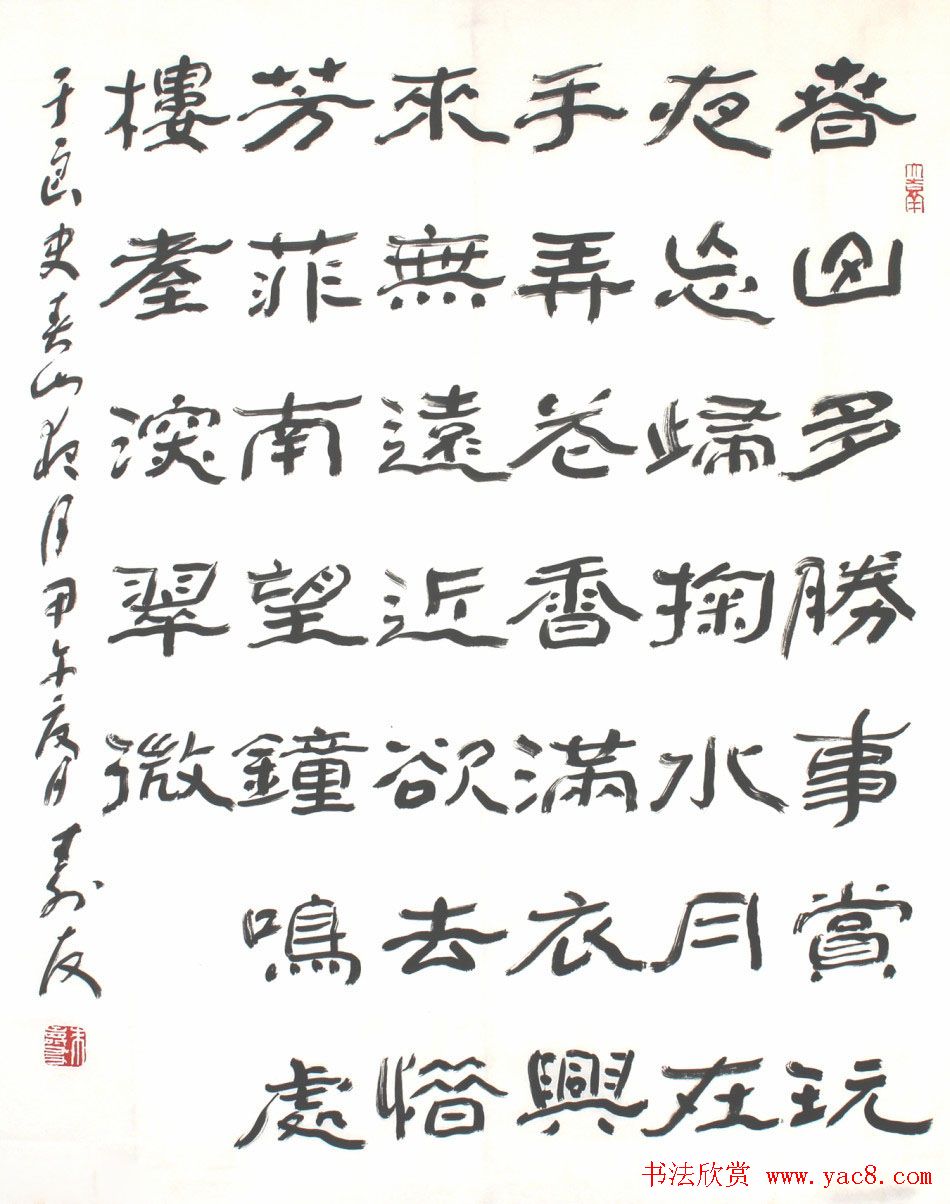 春山多勝事賞玩
夜忘歸掬水月在
手弄花香滿衣興
來無遠近欲去惜
芳菲南望鐘鳴處
樓臺深翠微
于良史春山夜月甲午夏月壽友
朱壽友
书法欣赏 www.yac8.com